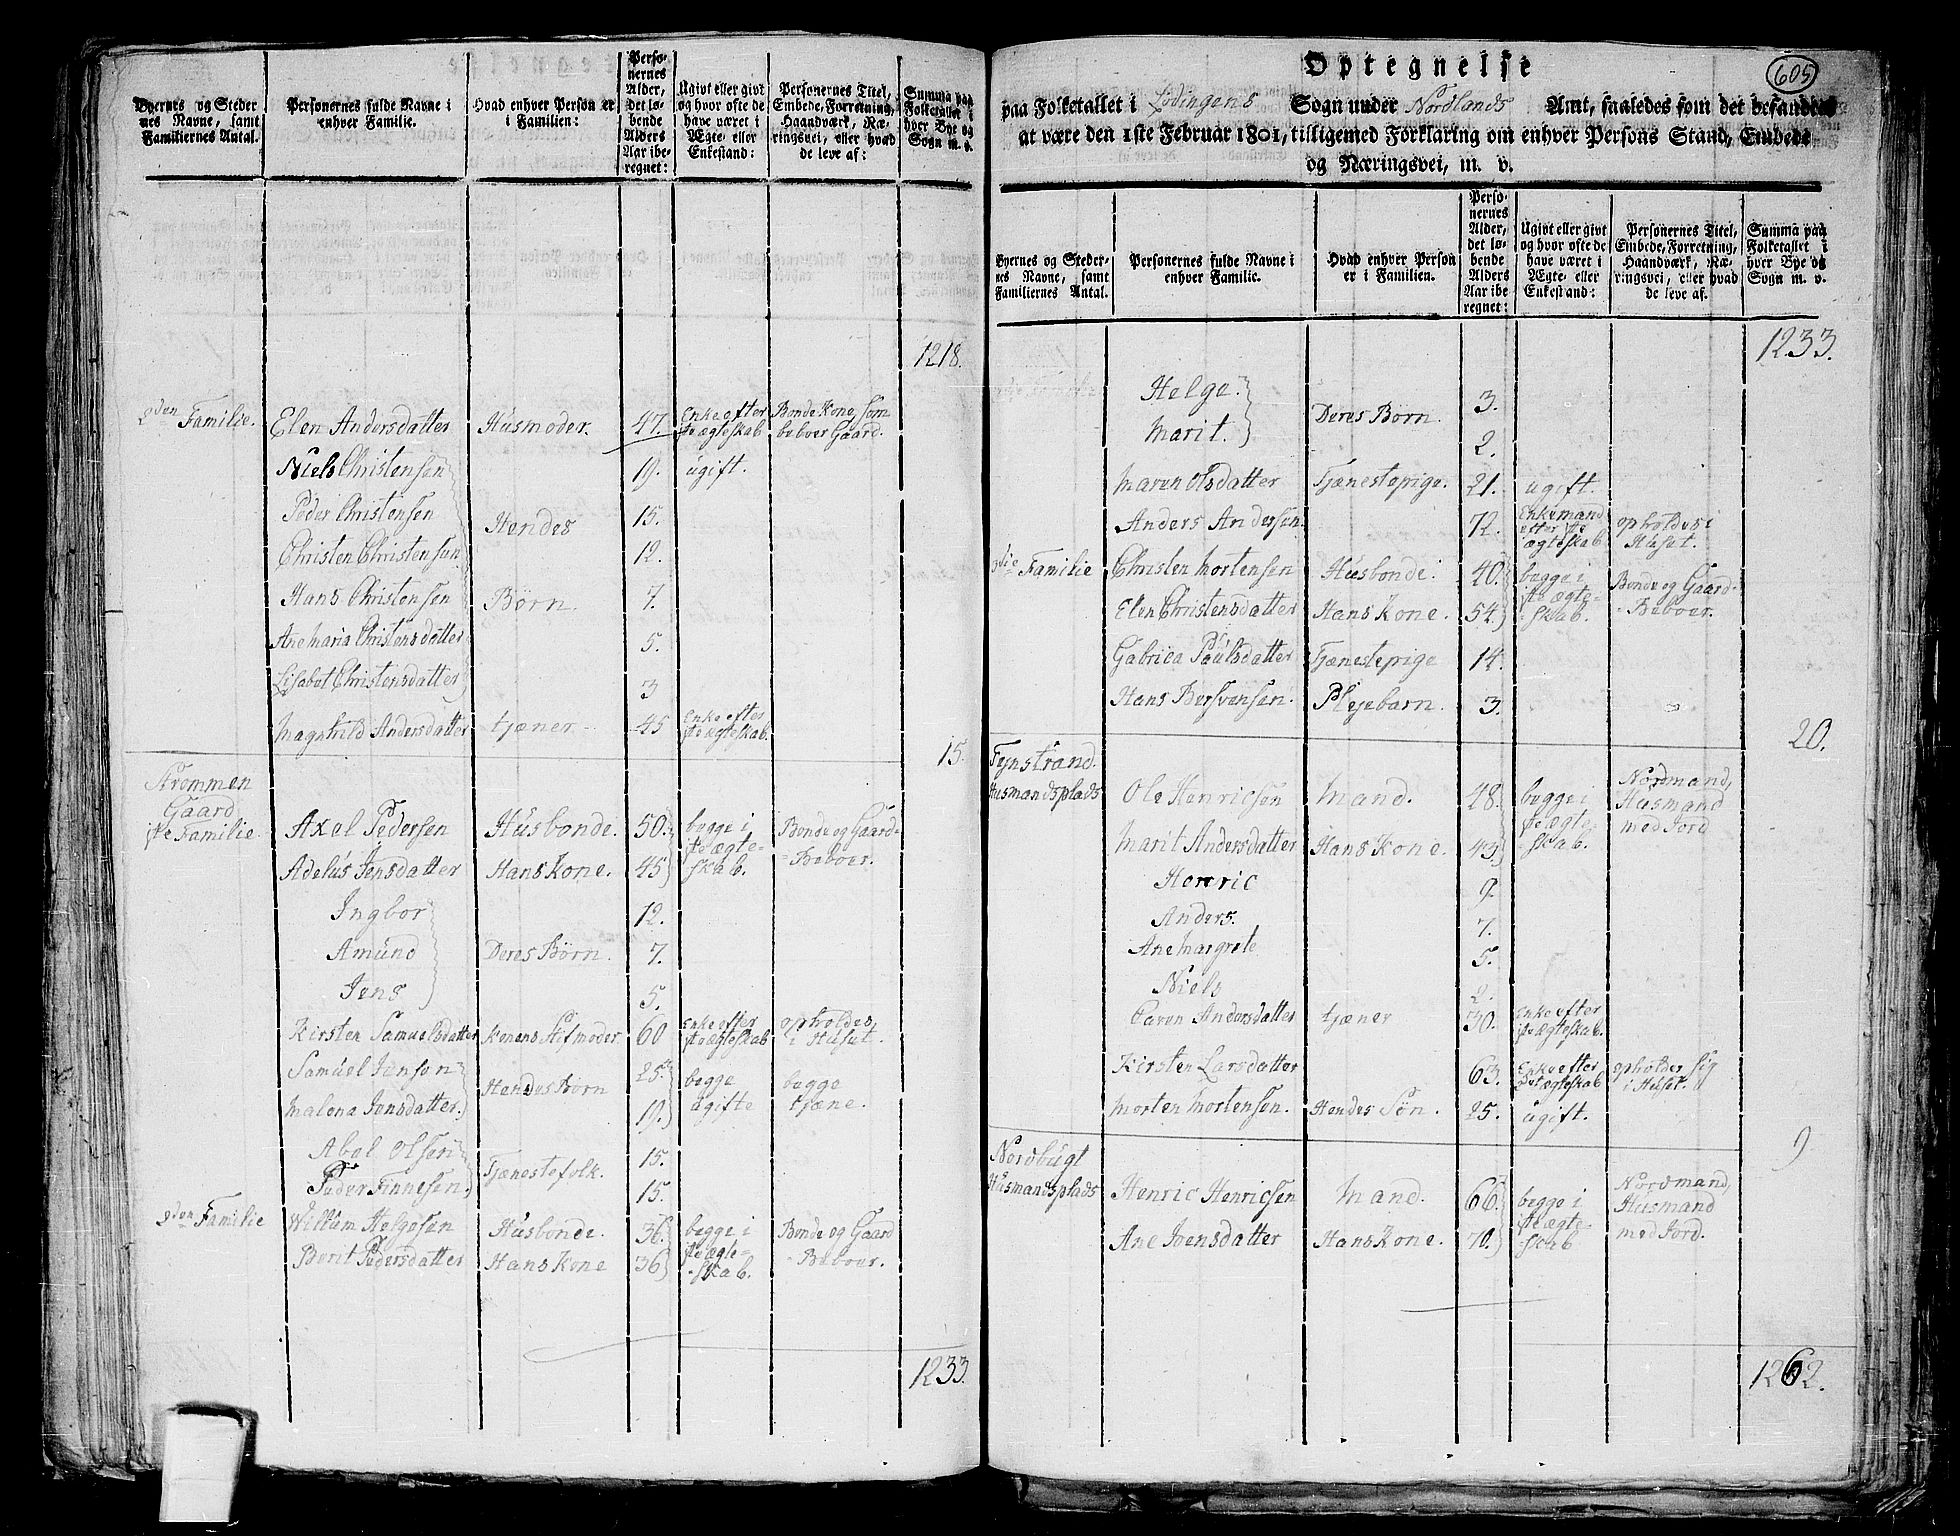 Byernes og Steder
nes Navne, samt
Familiernes Antal.
Personernes fulde Navne i
enhver Familie.
Hvad enhver Person er
i Familien:
Perso-
nernes
Alder,
det lø-
bende
Alders
Aar ibe-
regnet:
Ugivt eller givt
og hvor ofte de
have været i
Ægte- eller
Enkestand:
Personernes Titel,
Embede, Forretning,
Haandværk, Næ-
ringsvei, eller hvad
de leve af:
Summa paa
Folketallet i
hver Bye og
Sogn m. v.
1218.
2den Familie. Elen Andersdatter Husmoder. 47. Enke efter 1te ægteskab Bonde Kone, som beboer Gaard.
Niels Christensen 19. ugift.
Peder Christensen 15.
Hendes
Christen Christensen 12.
Hans Christensen Børn. 7.
Ane Maria Christensdatter 5.
Lisabet Christensdatter 3
Magnhild Andersdatter tjener 45 Enke efter 1te ægteskab.
15.
Strømmen
Gaard
1te Familie. Axel Pedersen Husbonde. 50. begge i 1te ægte- skab. Bonde og Gaard- Beboer.
Adelus Jensdatter Hans Kone. 45
Ingbor 12.
Amund Deres Børn. 7.
Jens 5.
Kirsten Samuelsdatter Konens Stifmoder 60 Enke efter 1te ægteskab opholdes i Huset.
Samuel Jensen 25. begge ugifte begge tjene.
Hendes Børn
Malena Jensdatter. 19.
Abel Olsen 15.
Tjenestefolk.
Peder Finnesen 15.
2den Familie Willum Helgesen Husbonde. 36. begge i 1te ægte- skab. Bonde og Gaard Beboer.
Berit Pedersdatter Hans Kone 36
1233.
605
Optegnelse
paa Folketallet i Lødingens Sogn under Nordlands Amt, saaledes som det befandtes
at være den 1ste Februar 1801, tilligemed Forklaring om enhver Persons Stand, Embede
og Næringsvei, m. v.
Byernes og Steder-
nes Navne, samt
Familiernes Antal.
Personernes fulde Navne i
enhver Familie.
Hvad enhver Person
er i Familien.
Perso-
nernes
Alder,
det lø-
bende
Alders
Aar ibe-
regnet:
Ugivt eller givt
og hvor ofte de
have været i
Ægte- eller
Enkestand:
Personernes Titel,
Embede, Forretning,
Haandværk, Næ-
ringsvei, eller hvad
de leve af.
Summa paa
Folketallet i
hver Bye og
Sogn m. v.
1233.
Helge. 3.
Deres Børn.
Marit. 2.
Maren Olsdatter Tjenestepige. 21. ugift.
Anders Andersen. 72. Enkemand efter 1te ægteskab opholdes i Huset.
3die Familie Christen Mortensen Husbonde. 40. begge i 1te ægte- skab. Bonde og Gaard- Beboer.
Elen Christensdatter Hans Kone. 54.
Gabriea Paulsdatter Tjenestepige 14.
Hans Bersvensen. Plejebarn. 3.
20.
Fynstrand.
Husmandsplads Ole Henricsen Mand. 48. begge i 1te ægt- skab. Nordmand, Husmand med Jord
Marit Andersdatter Hans Kone. 43
Henric 9.
Anders. 7.
Ane Margrete 5.
Niels 2.
Caren Andersdatter tjener 30. Enke efter 1te ægteskab.
Kirsten Larsdatter 63. Enke efter 1te ægteskab opholder sig i Huset.
Morten Mortensen. Hendes Søn. 25. ugift.
9
Nordbugt
Husmandsplads Henric Henricsen Mand. 66. begge i 1te ægte- skab Nordmand, Husmand med Jord.
Ane Joensdatter Hans Kone. 70.
1262.